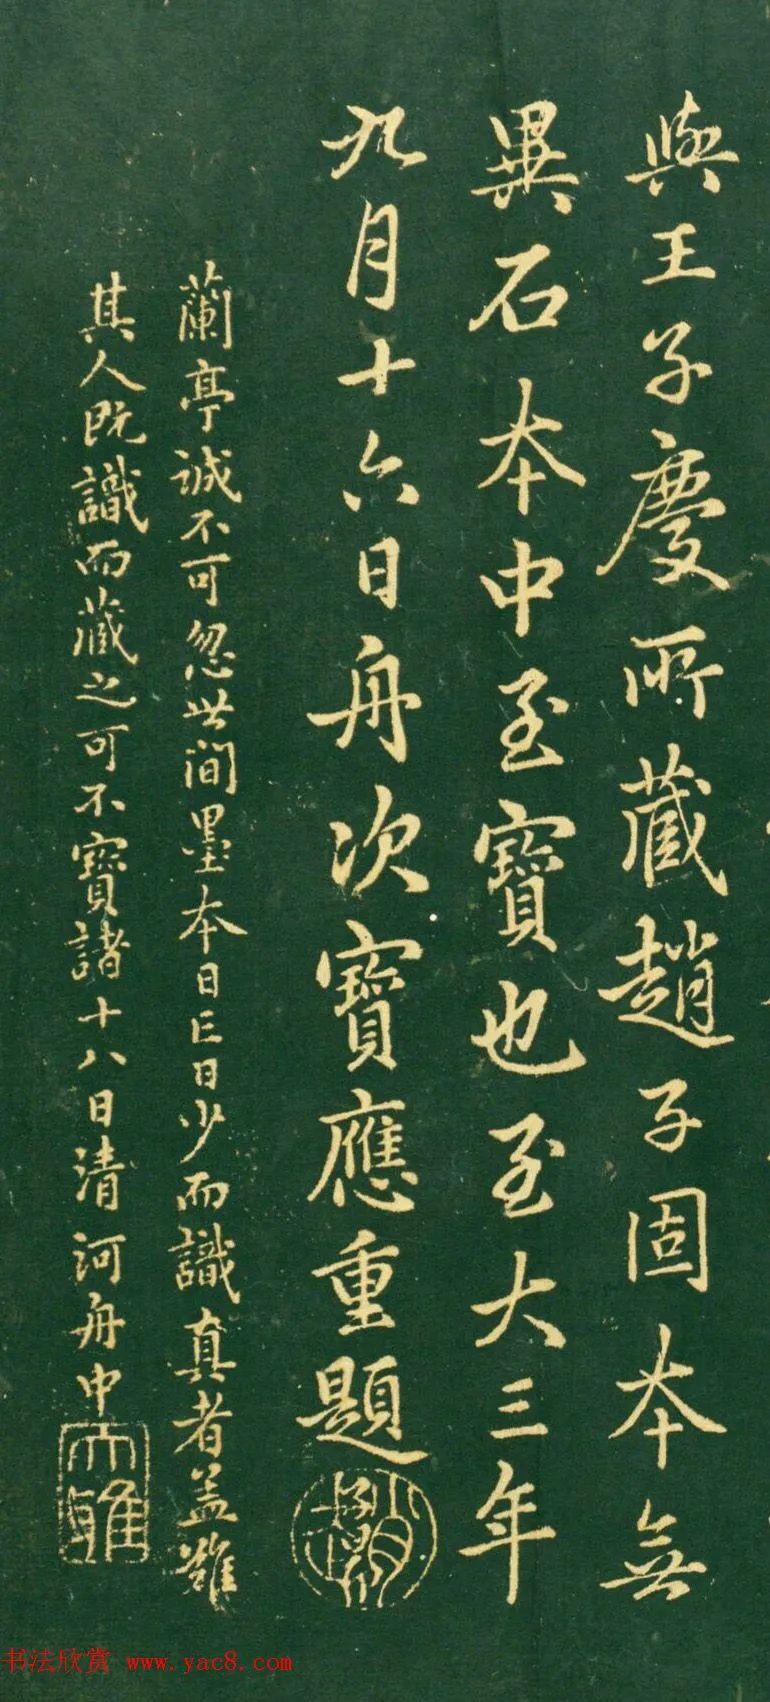 與王子慶所藏趙子固本無
異石本中至寶也至大三年
九月十六日舟次寶應重題
蘭亭誠不可忽世間墨本日亡日少而識真者蓋難
其人既識而藏之可不寶諸十八日清河舟中
大雅
书法欣赏 www.yac8.com